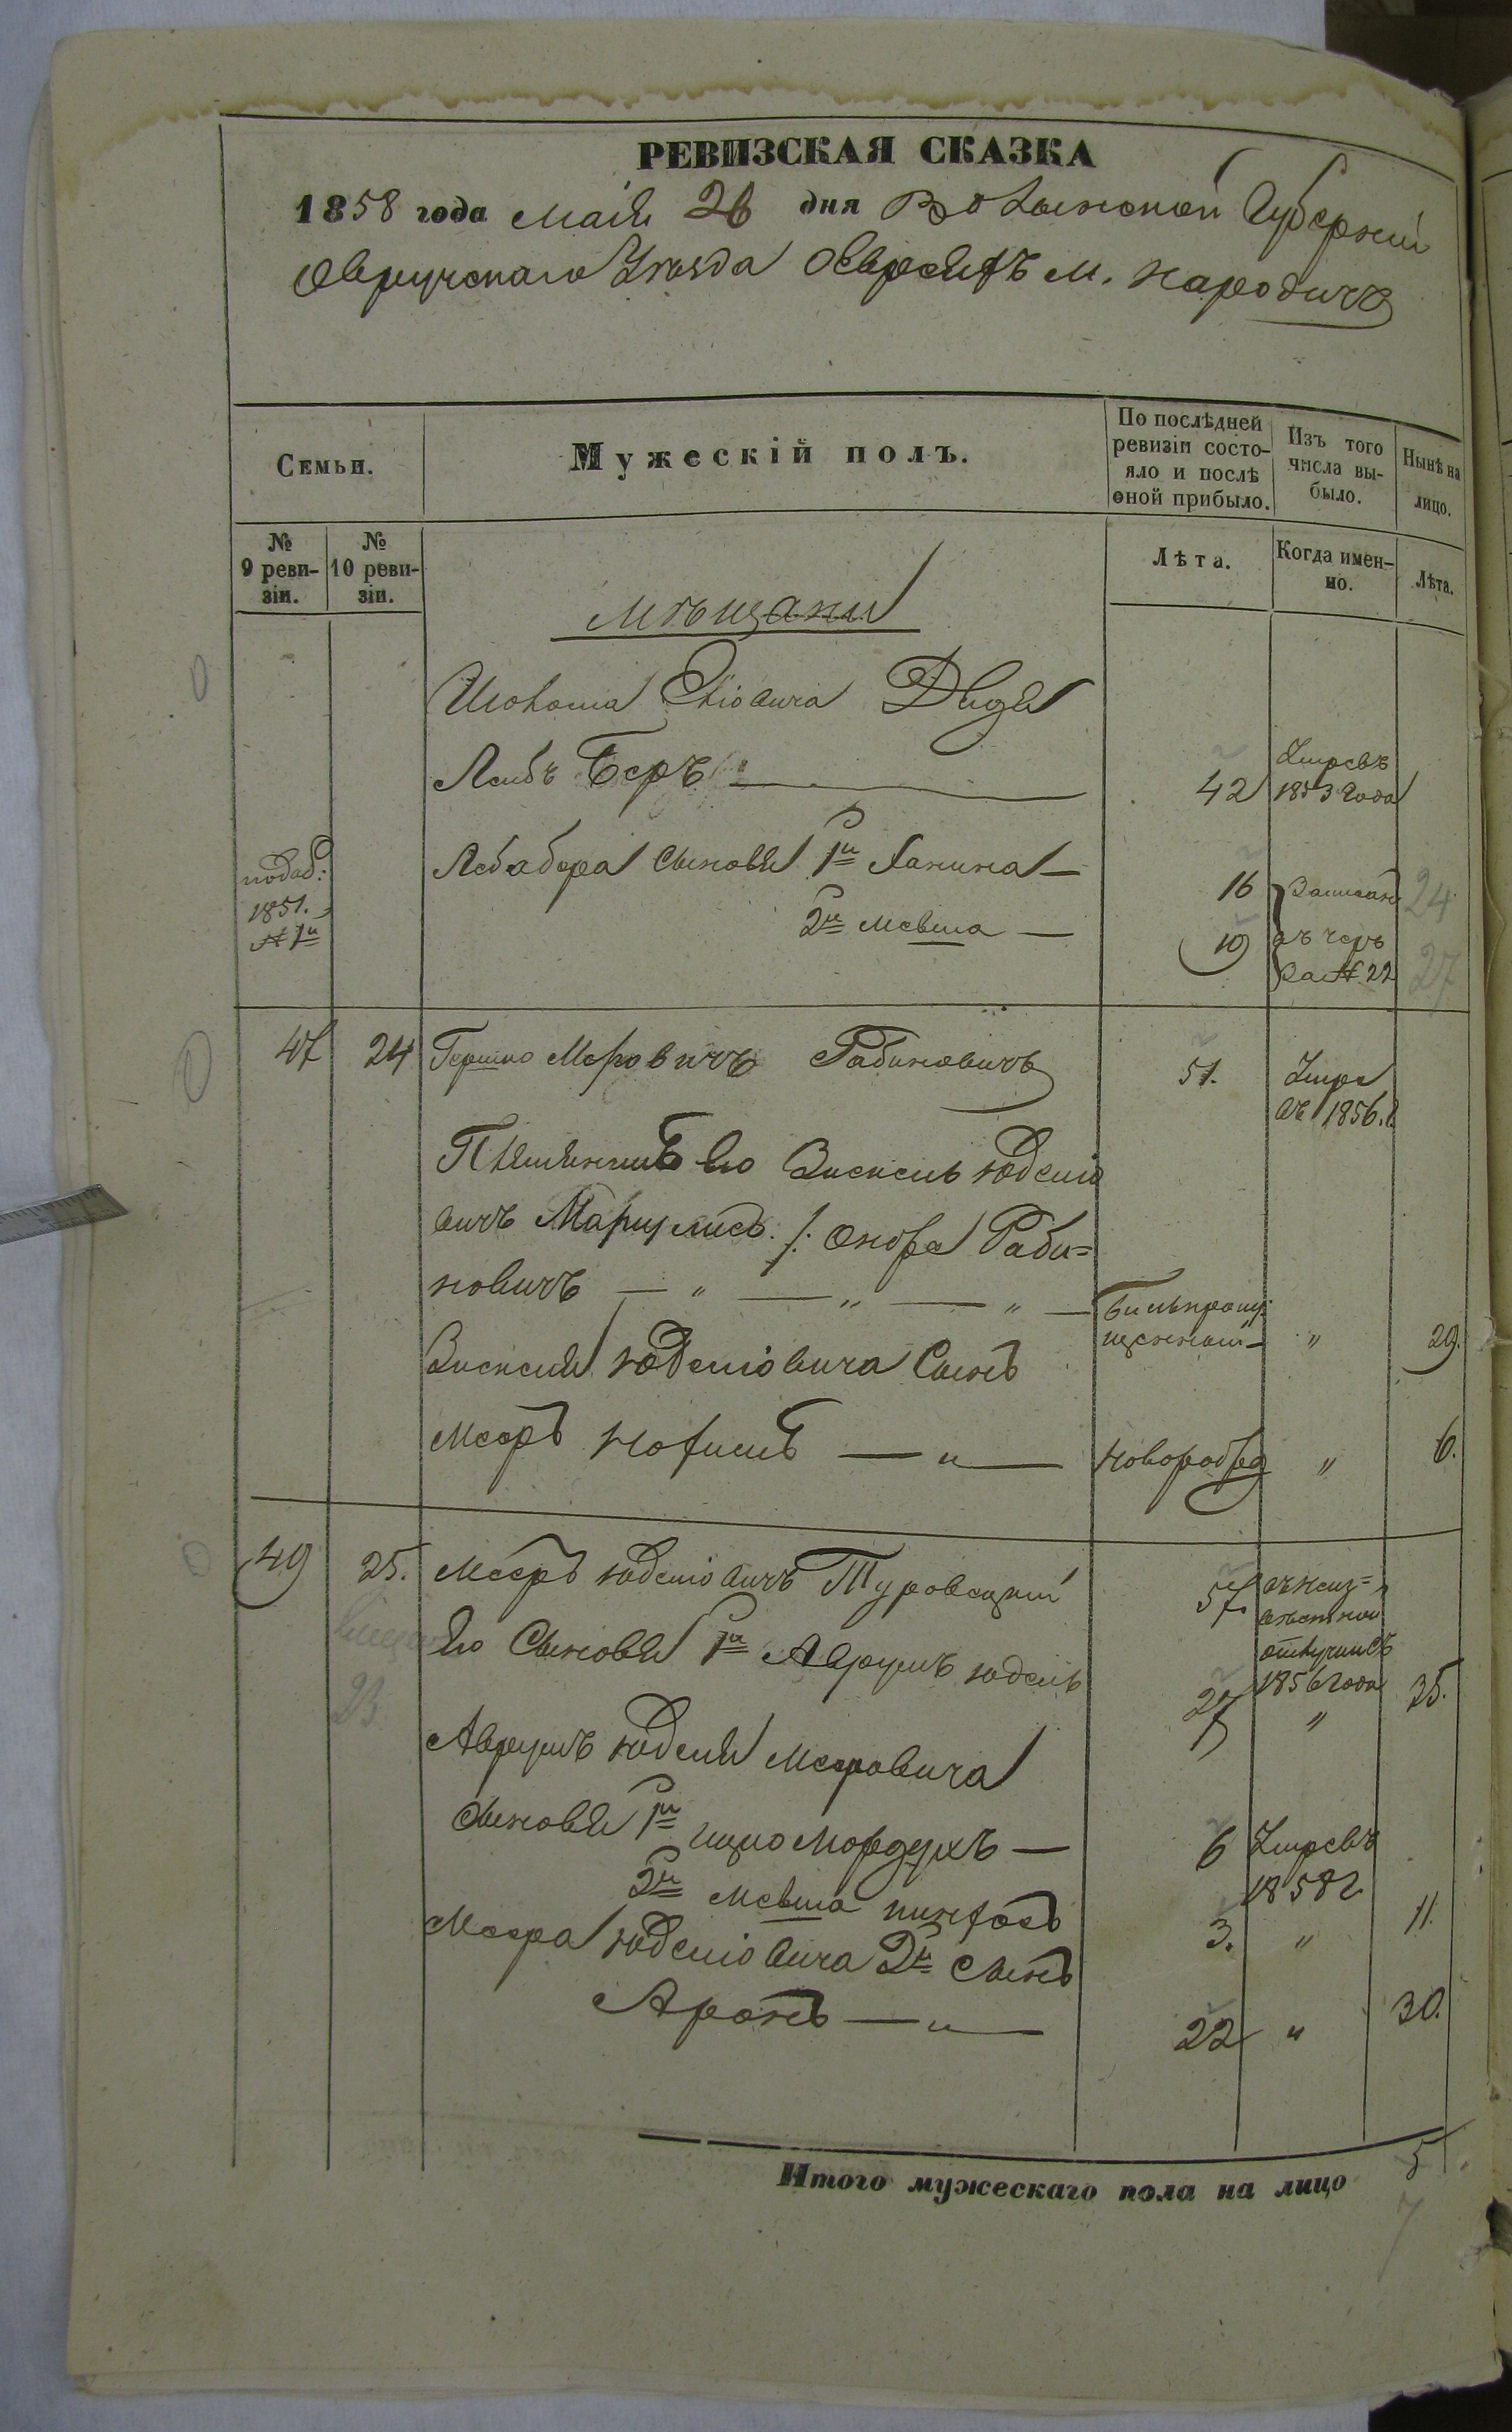 РЕВИЗСКАЯ СКАЗКА
1858 года Маія 26 дня Волынской Губерніи
Овручскаго Уѣзда Евреяхъ м. Народичь
Семьи.
Мужескій полъ.
По послѣдней ревизіи состояло и послѣ оной прибыло.
Изъ того числа выбыло.
Нынѣ на лицо.
№ 9 ревизіи.
№ 10 ревизіи.
Лѣта.
Когда именно.
Лѣта.
Мѣщани
Дядя
Лейбъ Беръ 42 Умре въ 1853 года
подоб: 1851. № 1й
Лейбабера Сыновья 1й Ханина 16 Записан
2й Мевша 19 въ
за № 22
24
27
47 24 Гершко Меровичъ Рабиновичъ 51. Умре
въ 1856. г
Племянникъ Его Зискель Юделіо
вичъ Маргулисъ. /: онъ же Раби=
новичъ — " — " — " — былъ пропу
щенный " 29.
Зискеля Юделіовича Сынъ
Мееръ Нохимъ — " — новорожд " 6.
49 25. Мееръ Юделіовичъ Туровецкій 57. въ неиз=
вѣстной
отлучкѣ съ
1856 года
Его Сыновья 1й Аврумъ Юдель 27 " 35.
23
Аврумъ Юделя Мееровича
Сыновья 1й Ицко Мордухъ — 6 Умре въ
1858 г
2й Мевша Пинхосъ 3. " 11.
Меера Юделіовича 2й Сынъ
Аронъ — " — 22 " 30.
Итого мужескаго пола на лицо 5
7